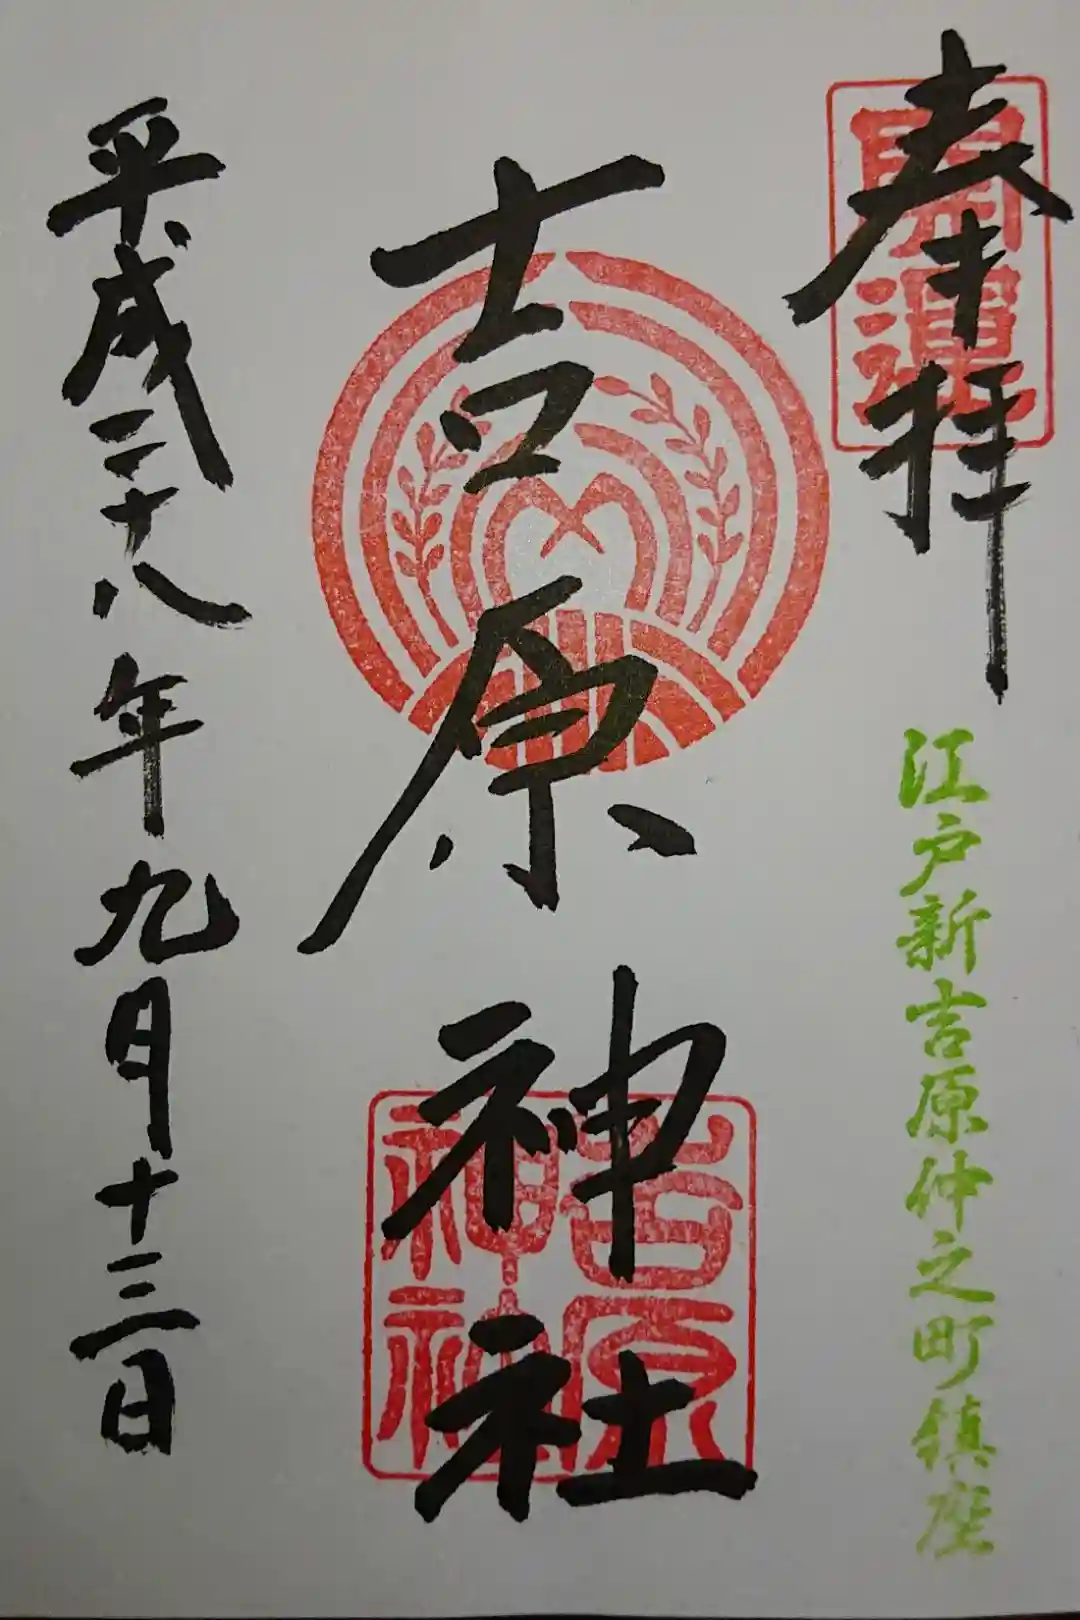 奉拝
開運
江戸新吉原仲之町鎮座
吉原神社
吉原
神社
平成二十八年九月十三日